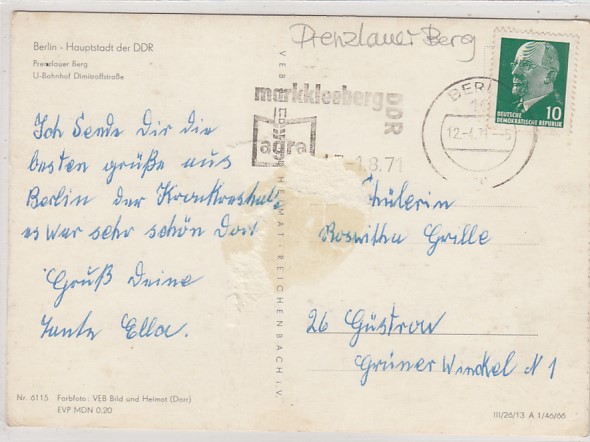 Berlin - Hauptstadt der DDR
Prenzlauer Berg
U-Bahnhof Dimitroffstraße
Prenzlauer Berg
Ich Sende Dir die
besten grüße aus
Berlin der
es war sehr schön Dort
Gruß Deine
Tante Ella.
Nr. 6115 Farbfoto: VEB Bild und Heimat (Darr)
EVP MDN 0,20
VEB HEIMAT REICHENBACH i.V.
markkleeberg
DDR
agra
1.8.71
BERLIN
12.-4.71
DEUTSCHE
DEMOKRATISCHE REPUBLIK
10
Schülerin
Roswitha Grille
26 Güstrow
Grüner Winkel N 1
III/26/13 A 1/46/66